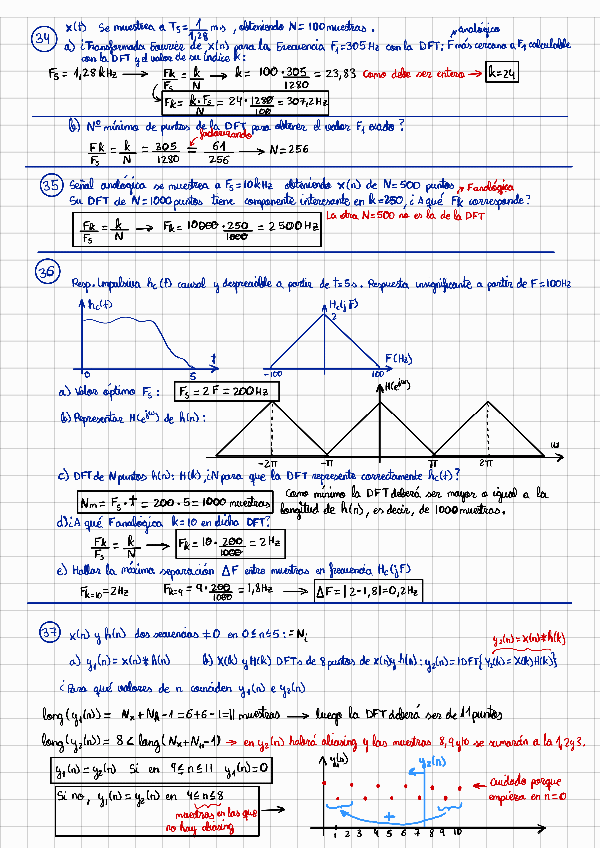 34 x(t) Se muestrea a Ts = 1/1,28 ms, obteniendo N = 100 muestras.
Analógica
a) ¿Transformada Fourier de x(n) para la Frecuencia F1 = 305 Hz con la DFT; F más cercano a F1 calculable
con la DFT y el valor de su índice k:
Fs = 1,28 kHz → Fk/Fs = k/N → k = 100·305/1280 = 23,83 Como debe ser entero → k = 24
Fk = k·Fs/N = 24·1280/100 = 307,2 Hz
b) Nº mínimo de puntos de la DFT para obtener el valor F1 exacto?
factorizando
Fk/Fs = k/N = 305/1280 = 61/256 → N = 256
35 Señal analógica se muestrea a Fs = 10 kHz obteniendo x(n) de N = 500 puntos. F analógica
Su DFT de N = 1000 puntos tiene componente interesante en k = 250, ¿A qué Fk corresponde?
Fk/Fs = k/N → Fk = 10000·250/1000 = 2500 Hz
La otra N = 500 no es la de la DFT
36
Resp. Impulsiva hc(t) causal y despreciable a partir de t = 5 s. Respuesta insignificante a partir de F = 100 Hz
hc(t)
Hc(jF)
2
F(Hz)
0
5
t
-100
100
a) Valor óptimo Fs: Fs = 2F = 200 Hz
H(e^jω)
b) Representar H(e^jω) de h(n):
ω
-2π
-π
π
2π
c) DFT de N puntos h(n): H(k), ¿N para que la DFT represente correctamente hc(t)?
Nm = Fs·t = 200·5 = 1000 muestras
Como mínimo la DFT deberá ser mayor o igual a la
longitud de h(n), es decir, de 1000 muestras.
d) ¿A qué F analógica k = 10 en dicho DFT?
Fk/Fs = k/N → Fk = 10·200/1000 = 2 Hz
e) Hallar la máxima separación ΔF entre muestras en frecuencia Hc(jF)
Fk=10 = 2 Hz Fk=9 = 9·200/1000 = 1,8 Hz → ΔF = |2 - 1,8| = 0,2 Hz
37 x(n) y h(n) dos secuencias ≠ 0 en 0 ≤ n ≤ 5 : = Ni
y2(n) = x(n)*h(k)
a) y1(n) = x(n)*h(n) b) X(k) y H(k) DFTs de 8 puntos de x(n) y h(n): y2(n) = IDFT{Y2(k) = X(k)H(k)}
¿Para qué valores de n coinciden y1(n) e y2(n)
long(y1(n)) = Nx + Nh - 1 = 6+6-1 = 11 muestras → luego la DFT deberá ser de 11 puntos
long(y2(n)) = 8 < long(Nx + Nh - 1) → en y2(n) habrá aliasing y las muestras 8, 9 y 10 se sumarán a la 1, 2 y 3.
y1(n) = y2(n) Si en 9 ≤ n ≤ 11 y1(n) = 0
Si no, y1(n) = y2(n) en 4 ≤ n ≤ 8
muestras en las que
no hay aliasing
y1(n)
y2(n)
Cuidado porque
empieza en n = 0
+
1 2 3 4 5 6 7 8 9 10